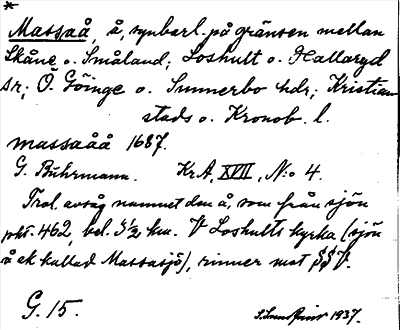 *
Massaå, å, synbarl. på gränsen mellan
Skåne o. Småland; Loshult o. Hallaryd
sr; Ö. Göinge o. Sunnerbo hdr; Kristian-
stads o. Kronob. l.
massaåå 1687.
G. Buhrmann. KrA, XVII, N:o 4.
Trol. avsåg namnet den å, som från sjön
pkt. 462, bel. 5½ km. V Loshults kyrka (sjön
å ek kallad Massasjö), rinner mot SSV.
G. 15.
1937.